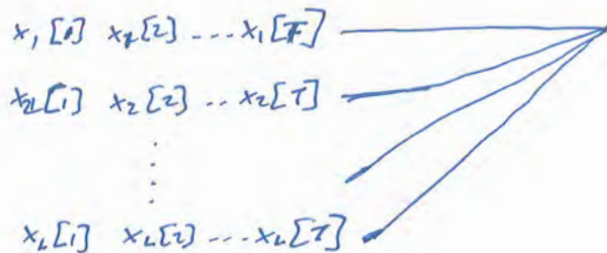 x₁[1] x₁[2] ---x₁[T]
x₂[1] x₂[2] .. x₂[T]
x_L[1] x_L[2] ---x_L[T]